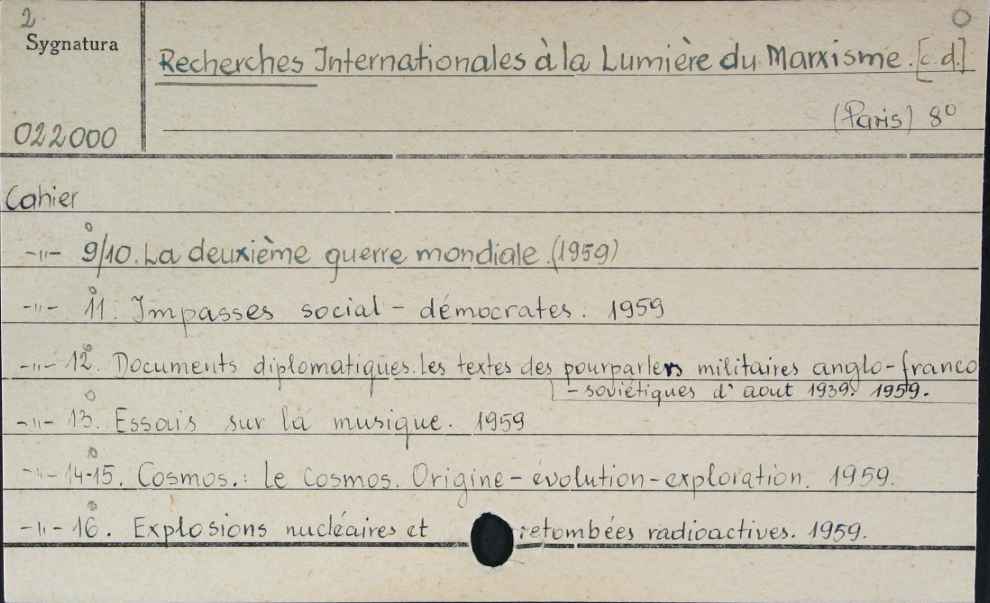 2.
Sygnatura
Recherches Internationales à la Lumière du Marxisme. [c.d.]
(Paris) 8°
022000
Cahier
-"- 9/10. La deuxième guerre mondiale. (1959)
-"- 11. Impasses social - démocrates. 1959
-"- 12. Documents diplomatiques. Les textes des pourparlers militaires anglo-franco
- soviétiques d' aout 1939. 1959.
-"- 13. Essais sur la musique. 1959
-"- 14-15. Cosmos.: Le Cosmos. Origine - évolution - exploration. 1959.
-"- 16. Explosions nucléaires et retombées radioactives. 1959.